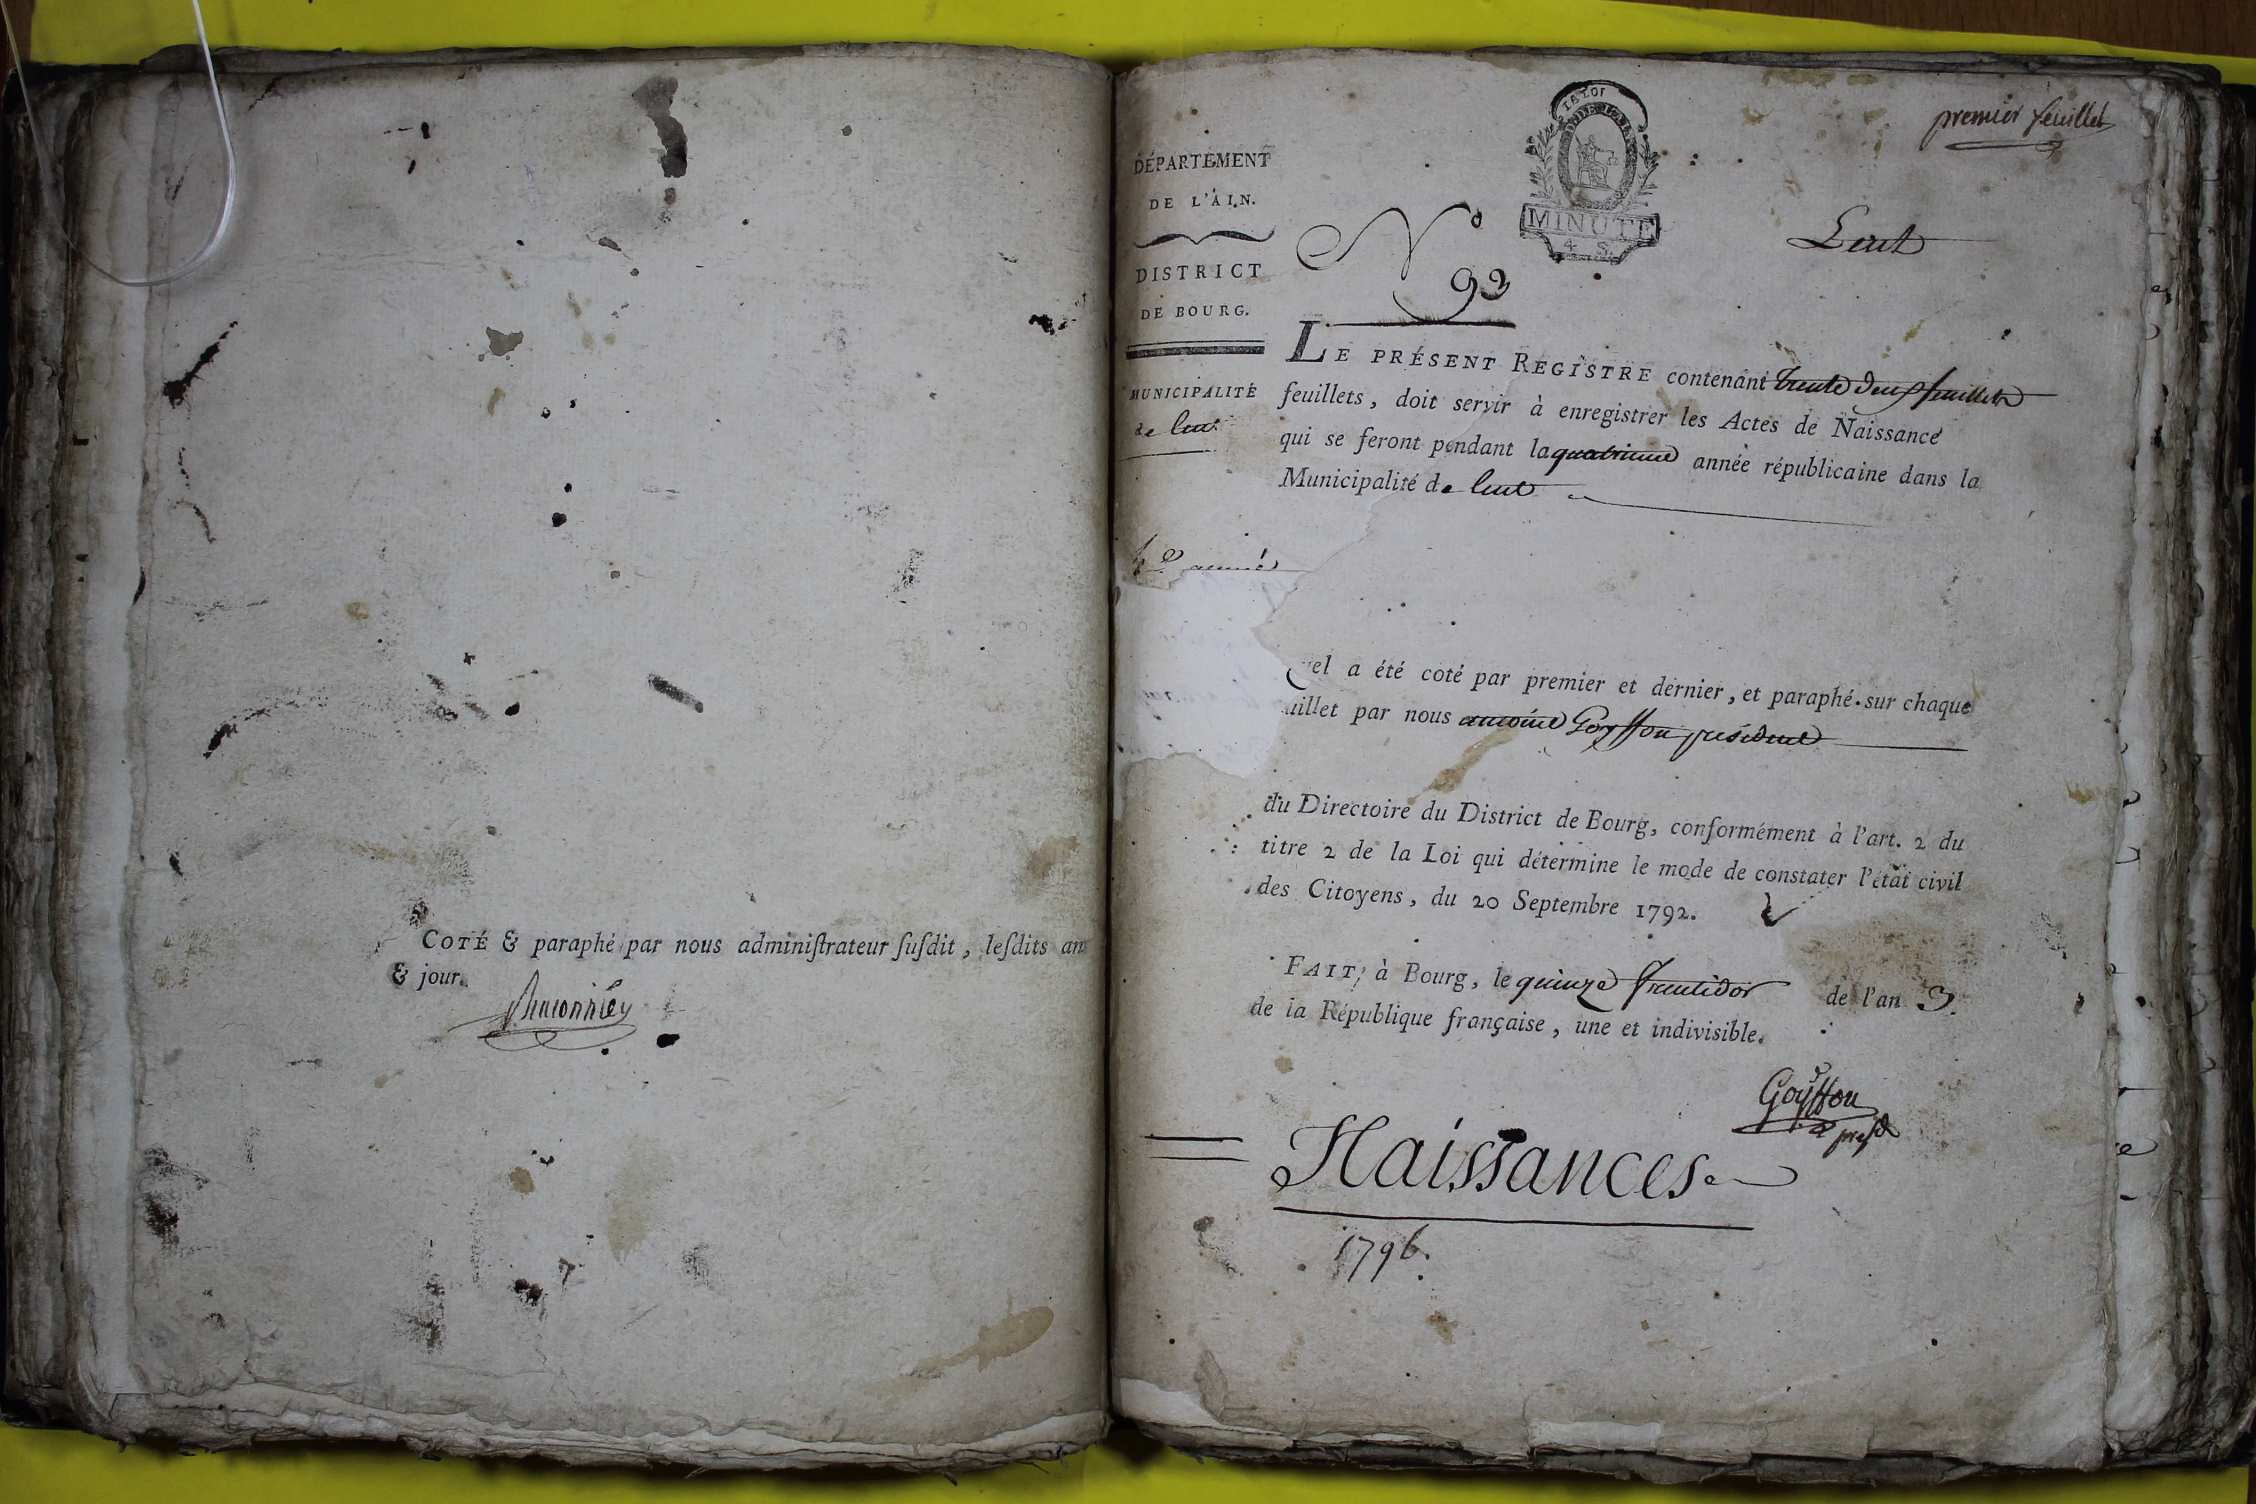 COTÉ & paraphé par nous adminiſtrateur ſuſdit, leſdits an
& jour.
premier feuillet
LA LOI
MINUTE
4 S.
Lent
DÉPARTEMENT
DE L'AIN.
DISTRICT
DE BOURG.
MUNICIPALITÉ
de lent
4.e année
N.o
92
LE PRÉSENT REGISTRE contenant trente deux feuillets
feuillets, doit servir à enregistrer les Actes de Naissance
qui se feront pendant la quatrieme année républicaine dans la
Municipalité de lent
quel a été coté par premier et dernier, et paraphé sur chaque
uillet par nous antoine Goyffon président
du Directoire du District de Bourg, conformément à l'art. 2 du
titre 2 de la Loi qui détermine le mode de constater l'état civil
des Citoyens, du 20 Septembre 1792.
FAIT, à Bourg, le quinze fructidor de l'an 3.
de la République française, une et indivisible.
Goyffon
presd
Naissances
1796.